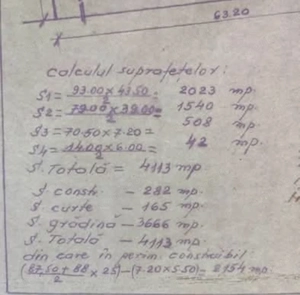 63.20
calculul suprafețelor:
S1 = 93.00 x 43.50 / 2 = 2023 mp.
S2 = 79.00 x 39.00 / 2 = 1540 mp.
S3 = 70.50 x 7.20 = 508 mp.
S4 = 14.00 x 6.00 / 2 = 42 mp.
S. Totală = 4113 mp.
S. constr. - 282 mp.
S. curte - 165 mp.
S. grădină - 3666 mp.
S. Totală - 4113 mp.
din care în perim. construibil
(87.50 + 88 / 2 x 25) - (7.20 x 5.50) - 2154 mp.